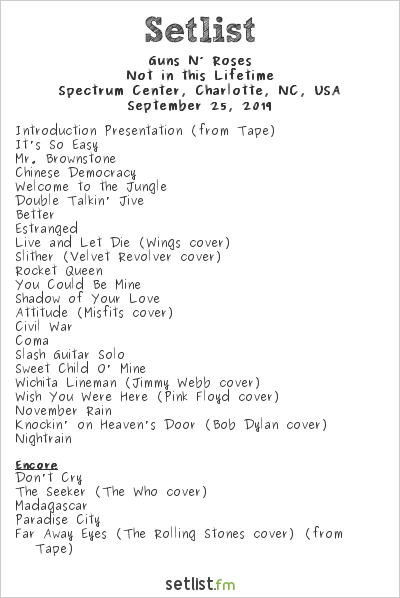 Setlist
Guns N' Roses
Not in this Lifetime
Spectrum Center, Charlotte, NC, USA
September 25, 2019
Introduction Presentation (from Tape)
It's So Easy
Mr. Brownstone
Chinese Democracy
Welcome to the Jungle
Double Talkin' Jive
Better
Estranged
Live and Let Die (Wings cover)
Slither (Velvet Revolver cover)
Rocket Queen
You Could Be Mine
Shadow of Your Love
Attitude (Misfits cover)
Civil War
Coma
Slash Guitar Solo
Sweet Child O' Mine
Wichita Lineman (Jimmy Webb cover)
Wish You Were Here (Pink Floyd cover)
November Rain
Knockin' on Heaven's Door (Bob Dylan cover)
Nightrain
Encore
Don't Cry
The Seeker (The Who cover)
Madagascar
Paradise City
Far Away Eyes (The Rolling Stones cover) (from
Tape)
setlist.fm